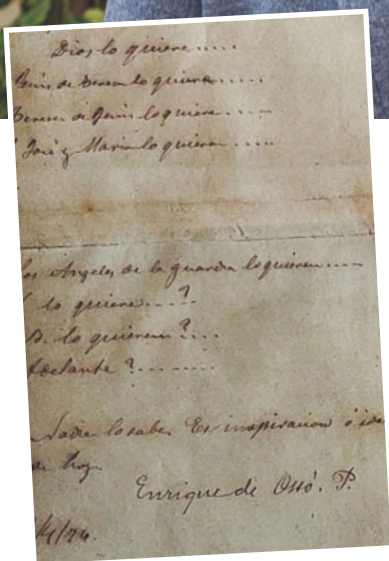 Dios lo quiere.....
Jesús de Teresa lo quiere.....
Teresa de Jesús lo quiere.....
José y Maria lo quieren.....
los Angeles de la guarda lo quieren.....
lo quiere....?
lo quieren?....
Adelante?........
Nadie lo sabe. Es inspiracion ó idea
de hoy
Enrique de Ossó. P.